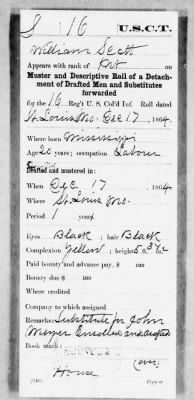 S 16 U.S.C.T.
William Scott
Appears with rank of Pvt on
Muster and Descriptive Roll of a Detach-
ment of Drafted Men and Substitutes
forwarded
for the 16 Reg't U. S. Col'd Inf. Roll dated
St. Louis Mo. Dec 17, 1864.
Where born Mississippi
Age 20 years; occupation Labour
Drafted and mustered in:
When Dec 17, 1864
Where St. Louis Mo.
Period 1 years
Eyes Black; hair Black
Complexion Yellow; height 5 ft. 3½ in.
Paid bounty and advance pay, $ 100
Bounty due $ 100
Where credited
Company to which assigned
Remarks: Substitute for John
Meyer Enrolled and drafted
Book mark:
(over)
Copyist